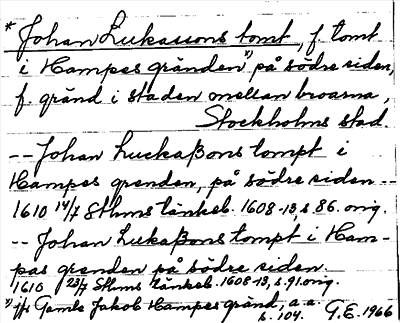 * Johan Lukassons tomt, f. tomt
i Hampes gränden *) på södre siden,
f. gränd i staden mellan broarna,
Stockholms stad.
-- Johan Luckaßons tompt i
Hampes grenden, på södre siden --
1610 14/7 Sthms tänkeb. 1608-13, s 86. orig.
-- Johan Lukaßons tompt i Ham-
pes grenden på södre siden.
1610 23/7 Sthms tänkeb. 1608-13, s. 91. orig.
*) jfr Gamle Jakob Hampes gränd, a. a.
s. 104. G.E. 1966